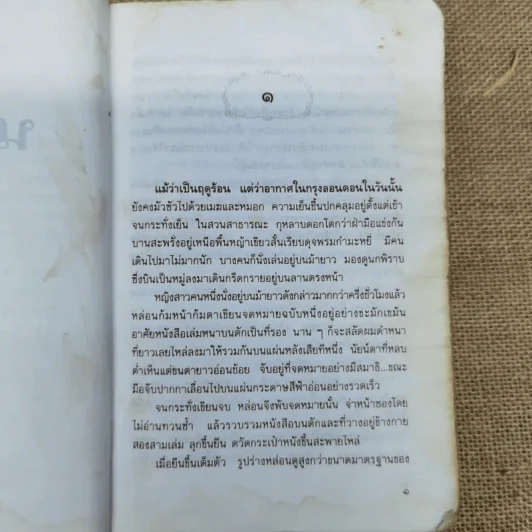 ๑
แม้ว่าเป็นฤดูร้อน แต่ว่าอากาศในกรุงลอนดอนในวันนั้น
ยังคงมัวซัวไปด้วยเมฆและหมอก ความเย็นชื้นปกคลุมอยู่ตั้งแต่เช้า
จนกระทั่งเย็น ในสวนสาธารณะ กุหลาบดอกโตกว่าฝ่ามือแข่งกัน
บานสะพรั่งอยู่เหนือพื้นหญ้าเขียวสั้นเรียบดุจพรมกำมะหยี่ มีคน
เดินไปมาไม่มากนัก บางคนก็นั่งเล่นอยู่บนม้ายาว มองดูนกพิราบ
ซึ่งบินเป็นหมู่ลงมาเดินกรีดกรายอยู่บนลานตรงหน้า
หญิงสาวคนหนึ่งนั่งอยู่บนม้ายาวดังกล่าวมากกว่าครึ่งชั่วโมงแล้ว
หล่อนก้มหน้าก้มตาเขียนจดหมายฉบับหนึ่งอยู่อย่างขะมักเขม้น
อาศัยหนังสือเล่มหนาบนตักเป็นที่รอง นาน ๆ ก็จะสลัดผมดำหนา
ที่ยาวเลยไหล่ลงมาให้รวมกันบนแผ่นหลังเสียทีหนึ่ง นัยน์ตาที่หลบ
ต่ำเห็นแต่ขนตายาวอ่อนช้อย จับอยู่ที่จดหมายอย่างมีสมาธิ...ขณะ
มือจับปากกาเลื่อนไปบนแผ่นกระดาษสีฟ้าอ่อนอย่างรวดเร็ว
จนกระทั่งเขียนจบ หล่อนจึงพับจดหมายนั้น จ่าหน้าซองโดย
ไม่อ่านทวนซ้ำ แล้วรวบรวมหนังสือบนตักและที่วางอยู่ข้างกาย
สองสามเล่ม ลุกขึ้นยืน ตวัดกระเป๋าหนังขึ้นสะพายไหล่
เมื่อยืนขึ้นเต็มตัว รูปร่างหล่อนดูสูงกว่าขนาดมาตรฐานของ
๑